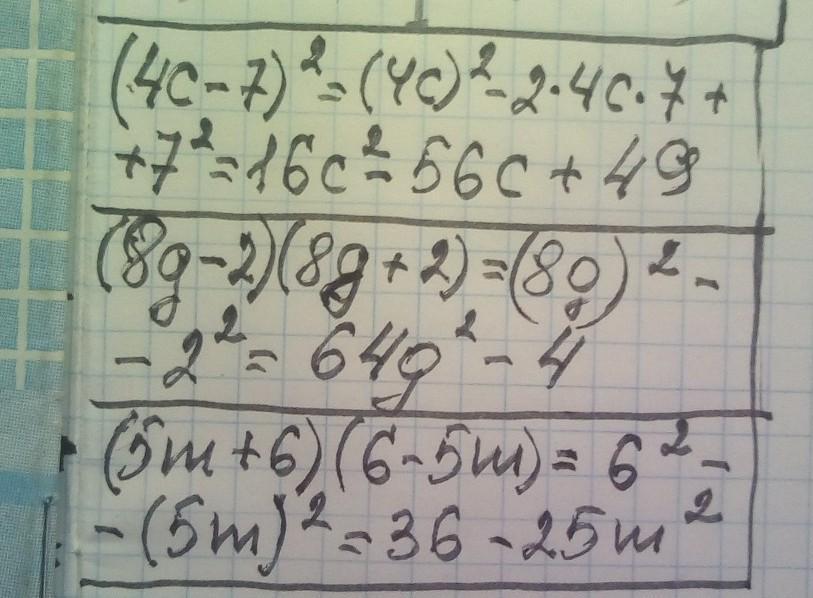 (4c-7)²=(4c)²-2·4c·7+
+7²=16c²-56c+49
(8g-2)(8g+2)=(8g)²-
-2²=64g²-4
(5m+6)(6-5m)=6²-
-(5m)²=36-25m²